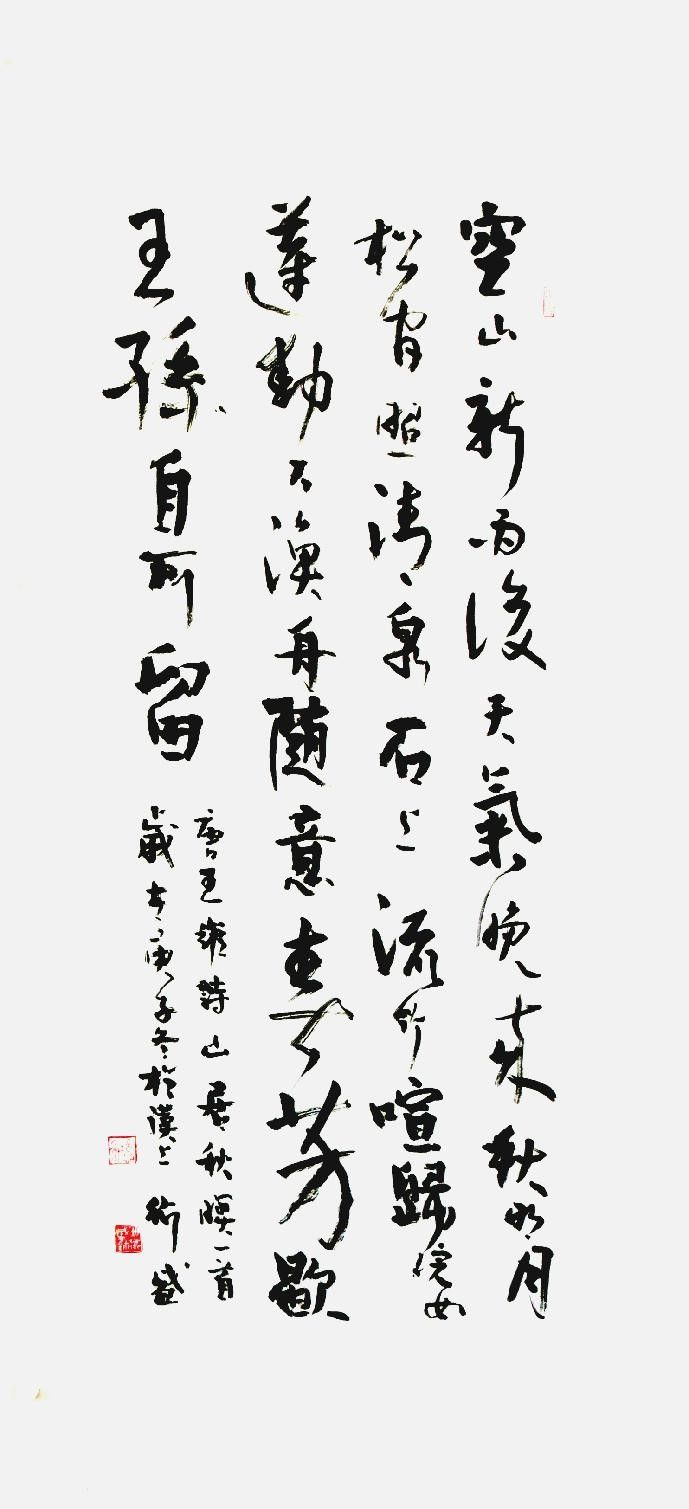 空山新雨後天氣晚來秋明月
松間照清泉石上流竹喧歸浣女
蓮動下漁舟隨意春芳歇
王孫自可留
唐王維詩山居秋暝一首
歲在庚子冬於漢上